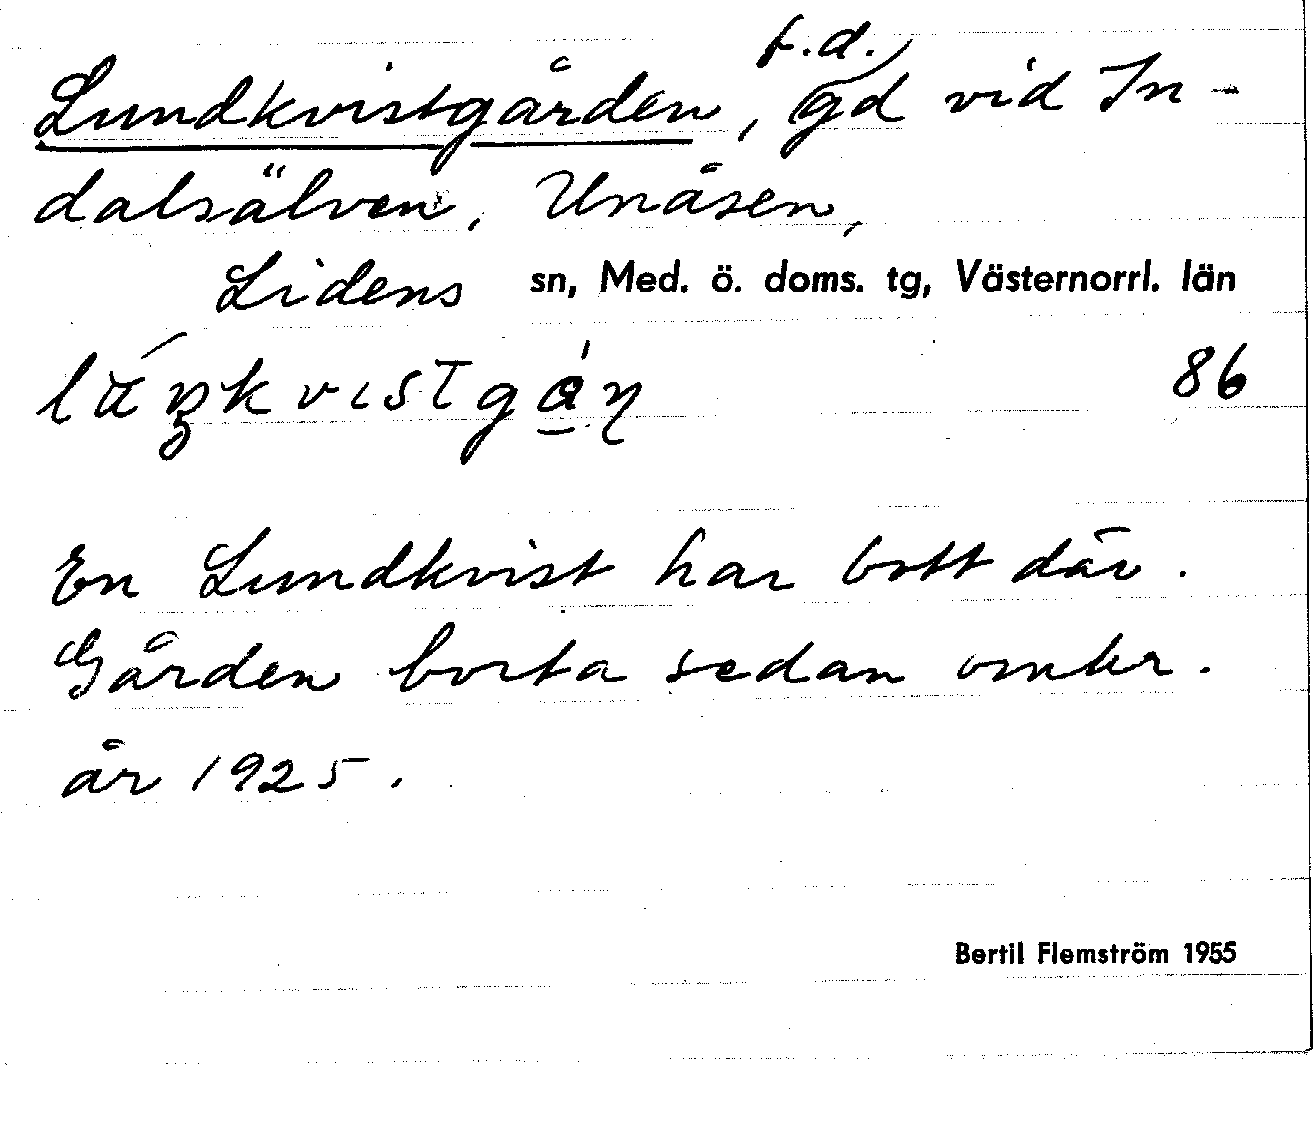 Lundkvistgården, f.d. gd vid In-
dalsälven, Unåsen,
Lidens sn, Med. ö. doms. tg, Västernorrl. län
86
En Lundkvist har bott där.
Gården borta sedan omkr.
år 1925.
Bertil Flemström 1955